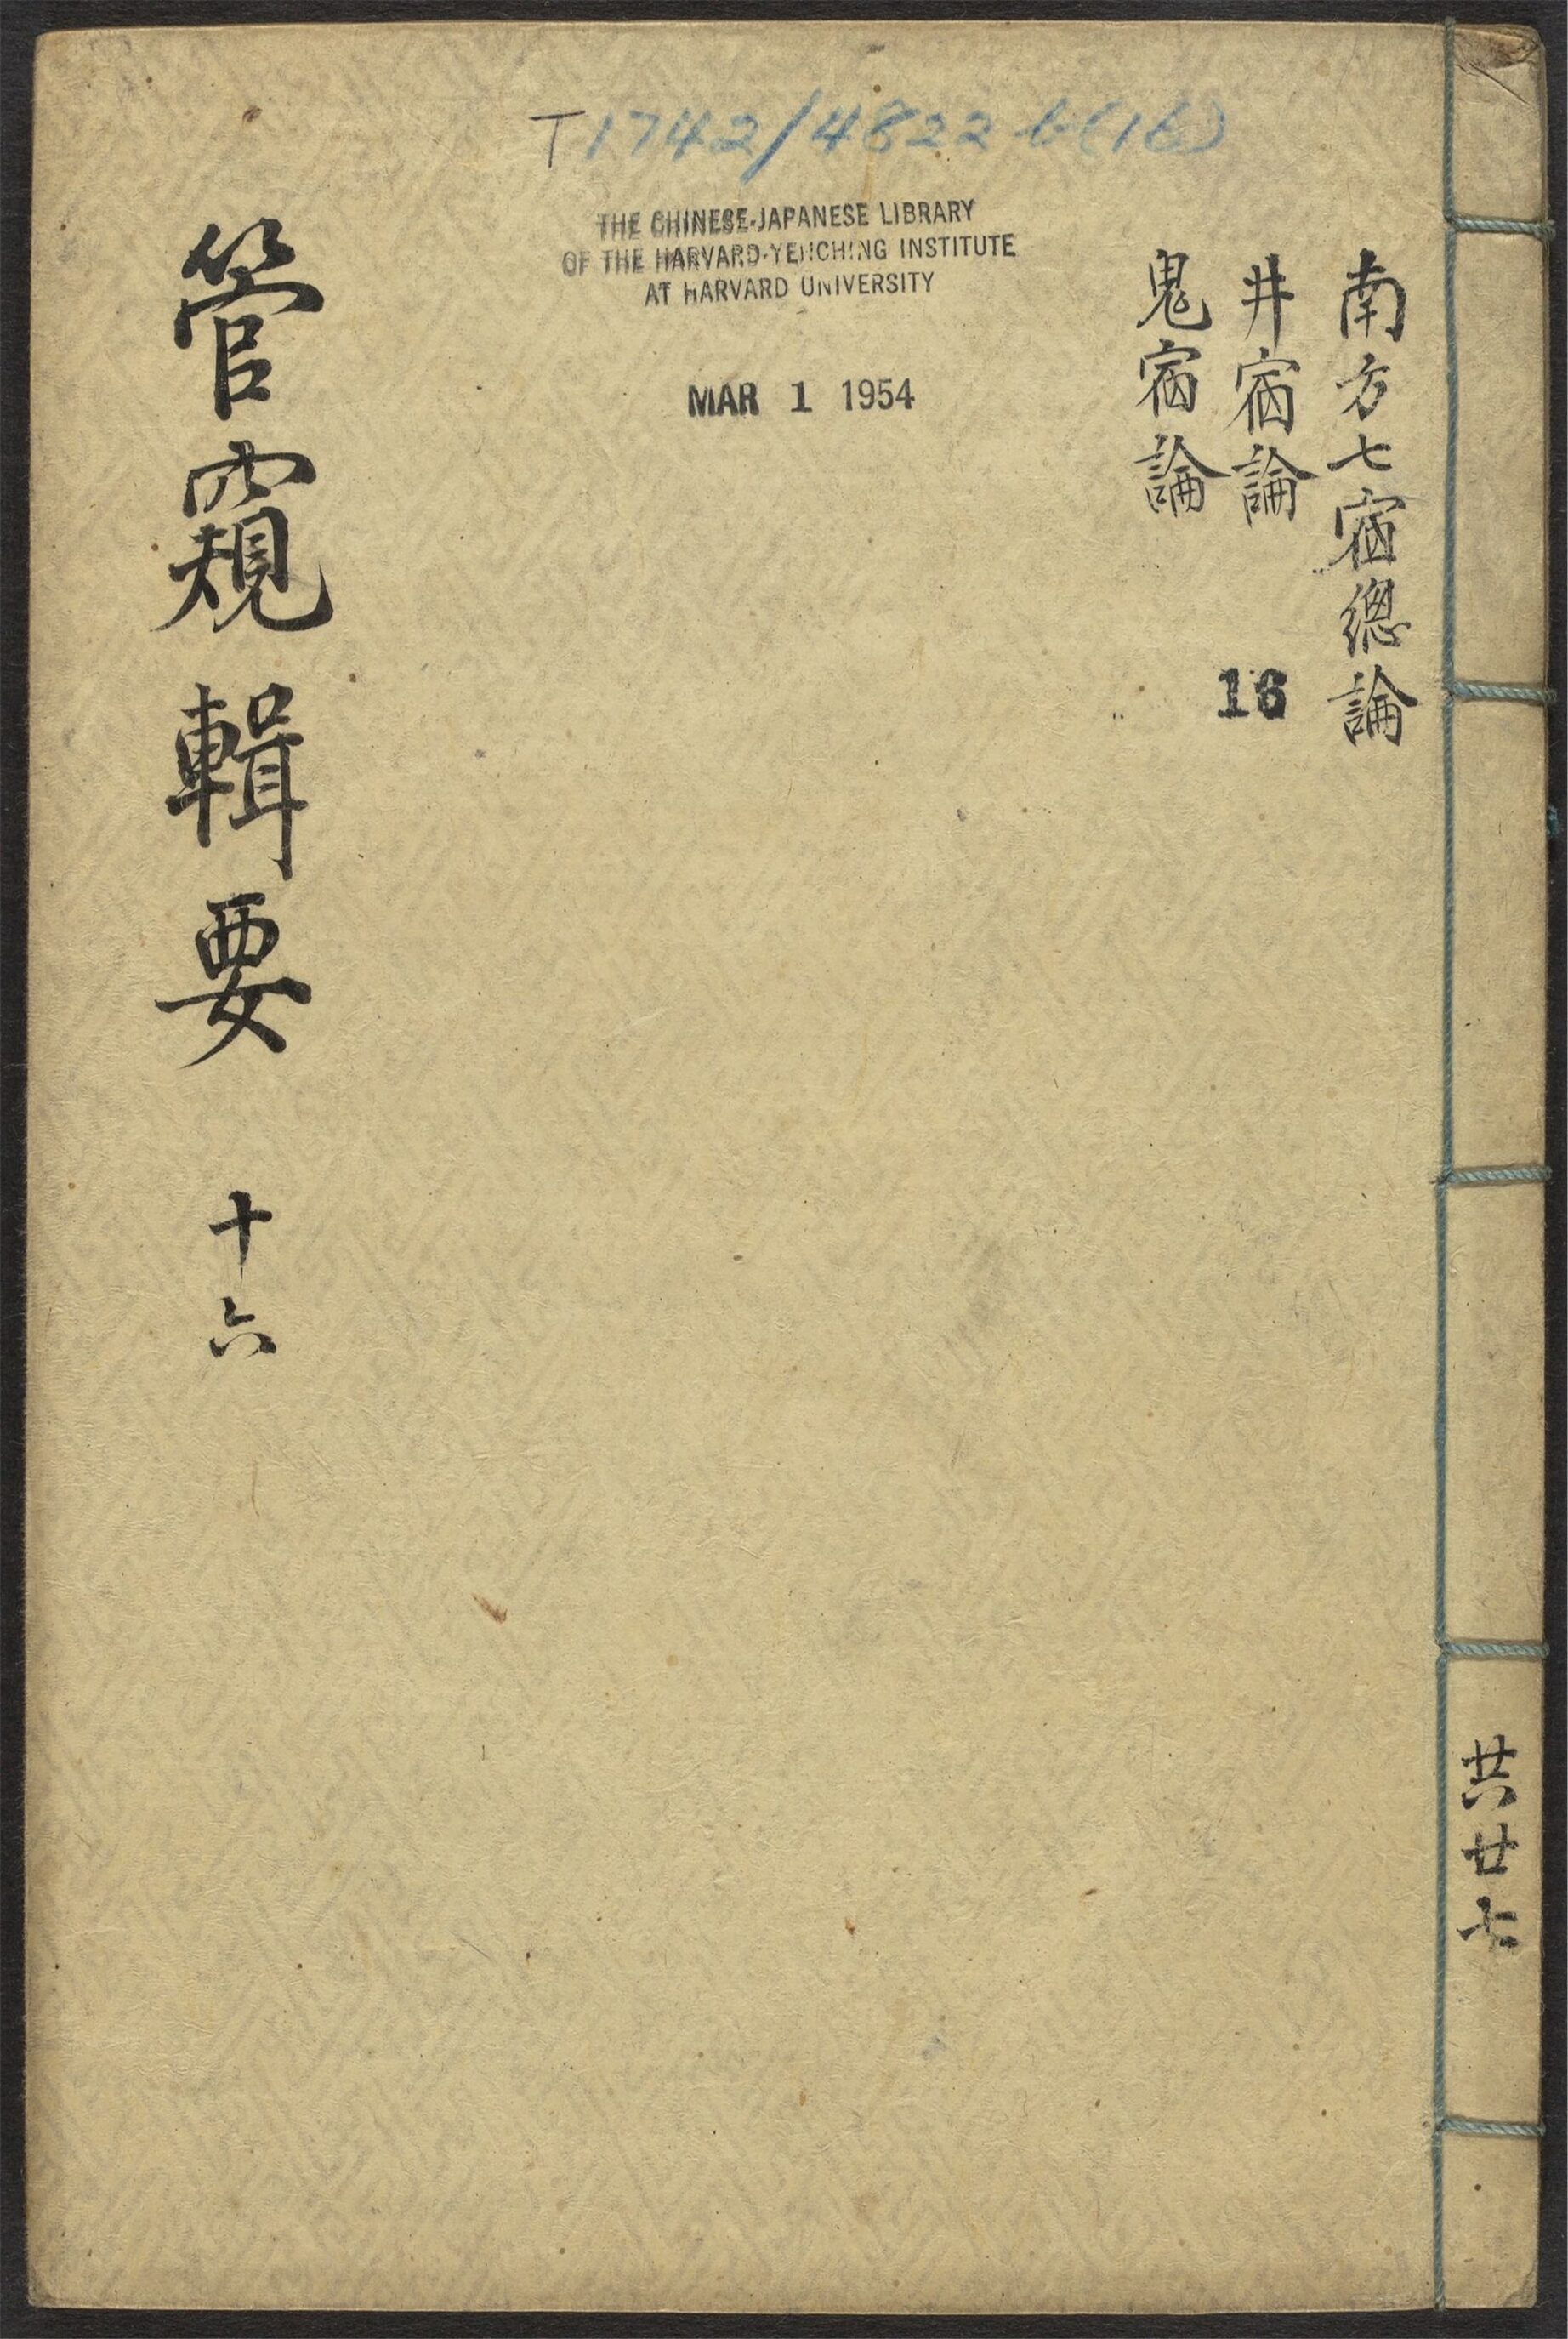 T1742/4822 b(16)
THE CHINESE-JAPANESE LIBRARY
OF THE HARVARD-YENCHING INSTITUTE
AT HARVARD UNIVERSITY
MAR 1 1954
南方七宿總論
井宿論
鬼宿論
16
管窺輯要 十六
共廿七